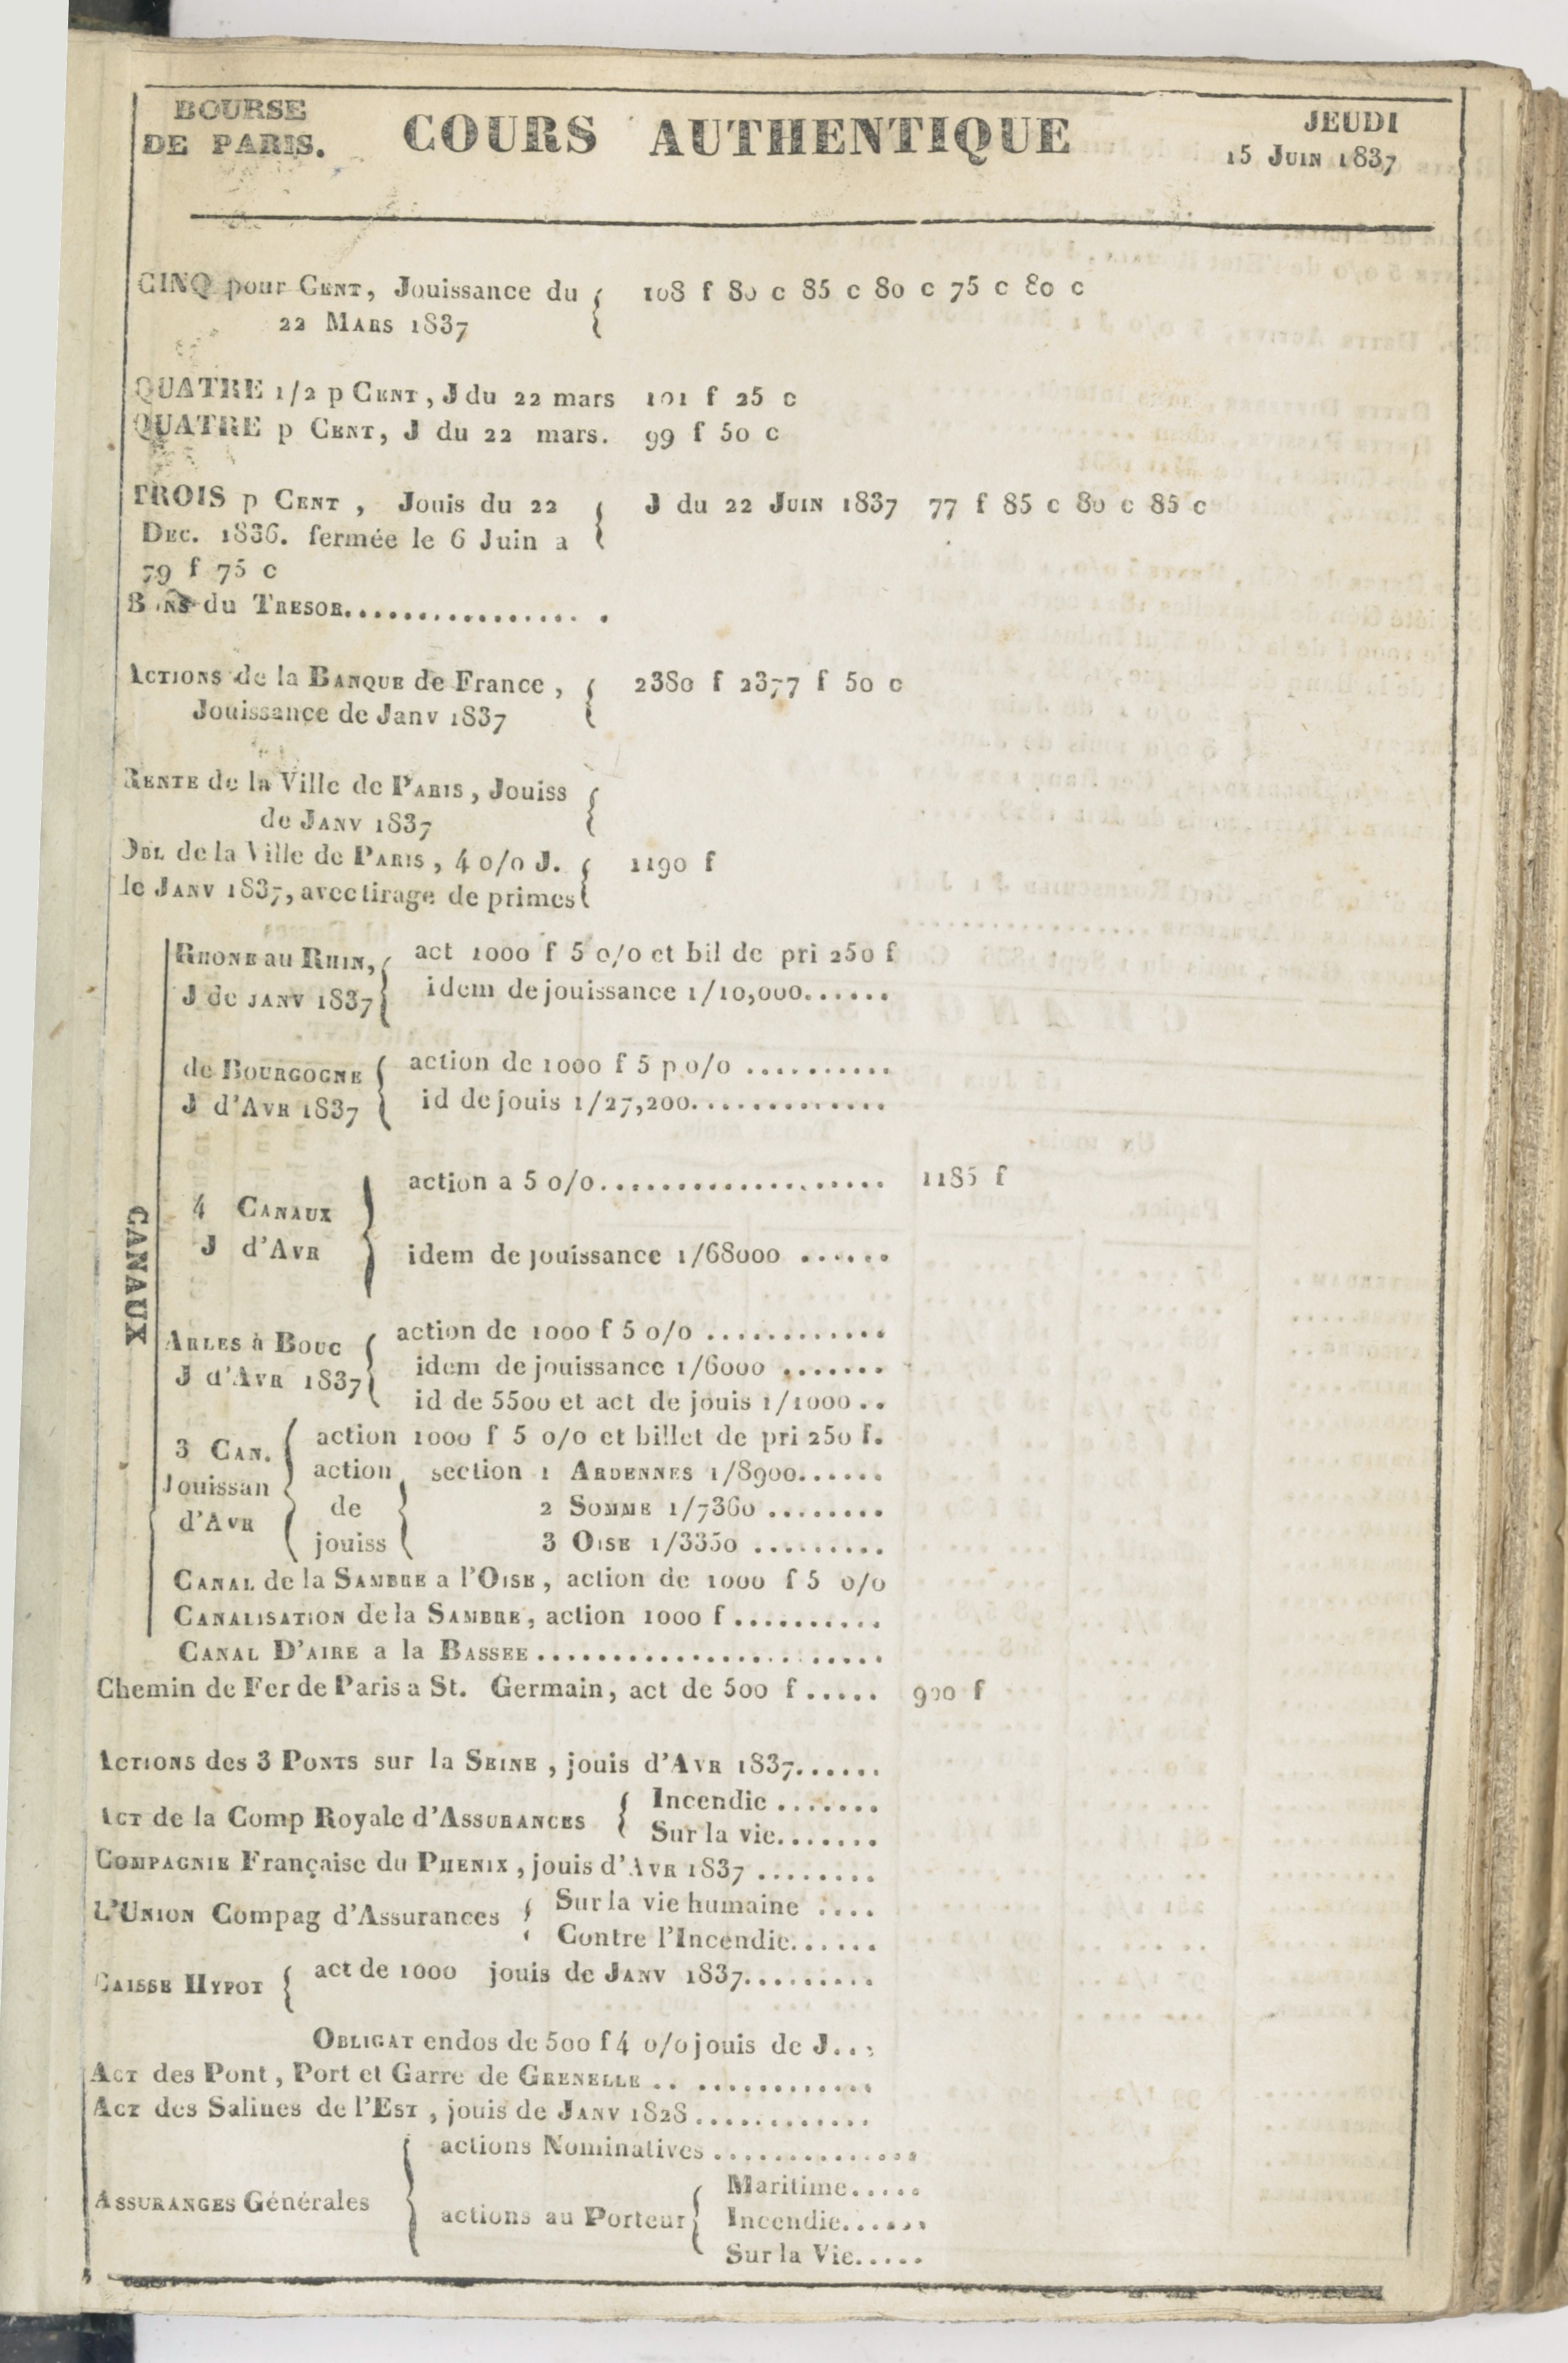 BOURSE
DE PARIS.
COURS AUTHENTIQUE
JEUDI
15 JUIN 1837
CINQ pour CENT, Jouissance du { 108 f 80 c 85 c 80 c 75 c 80 c
22 MARS 1837
QUATRE 1/2 p CENT, J du 22 mars 101 f 25 c
QUATRE p CENT, J du 22 mars. 99 f 50 c
TROIS p CENT, Jouis du 22 { J du 22 JUIN 1837 77 f 85 c 80 c 85 c
DEC. 1836. fermée le 6 Juin a
79 f 75 c
BONS du TRESOR................ .
ACTIONS de la BANQUE de France, { 2380 f 2377 f 50 c
Jouissance de Janv 1837
RENTE de la Ville de PARIS, Jouiss {
de JANV 1837
OBL de la Ville de PARIS, 4 o/o J. { 1190 f
de JANV 1837, avec tirage de primes
CANAUX
RHONE au RHIN, { act 1000 f 5 o/o et bil de pri 250 f
J de JANV 1837 idem de jouissance 1/10,000......
de BOURGOGNE { action de 1000 f 5 p o/o ..........
J d'AVR 1837 id de jouis 1/27,200.............
action a 5 o/o................... 1185 f
4 CANAUX }
J d'AVR
idem de jouissance 1/68000 ......
ARLES à BOUC { action de 1000 f 5 o/o ............
J d'AVR 1837 idem de jouissance 1/6000 .......
id de 5500 et act de jouis 1/1000..
3 CAN. { action 1000 f 5 o/o et billet de pri 250 f.
Jouissan action section 1 ARDENNES 1/8900......
d'AVR de { 2 SOMME 1/7360 ........
jouiss 3 OISE 1/3350 .........
CANAL de la SAMBRE a l'OISE, action de 1000 f 5 o/o
CANALISATION de la SAMBRE, action 1000 f..........
CANAL D'AIRE a la BASSEE.......................
Chemin de Fer de Paris a St. Germain, act de 500 f..... 900 f
ACTIONS des 3 PONTS sur la SEINE, jouis d'AVR 1837......
ACT de la Comp Royale d'ASSURANCES { Incendie .......
Sur la vie.......
COMPAGNIE Française du PHENIX, jouis d'AVR 1837 ........
L'UNION Compag d'Assurances { Sur la vie humaine ....
Contre l'Incendie......
CAISSE HYPOT { act de 1000 jouis de JANV 1837.........
OBLIGAT endos de 500 f 4 o/o jouis de J...
ACT des Pont, Port et Garre de GRENELLE .. ............
ACT des Salines de l'EST, jouis de JANV 1828............
actions Nominatives ..............
ASSURANGES Générales { actions au Porteur { Maritime.....
Incendie......
Sur la Vie.....